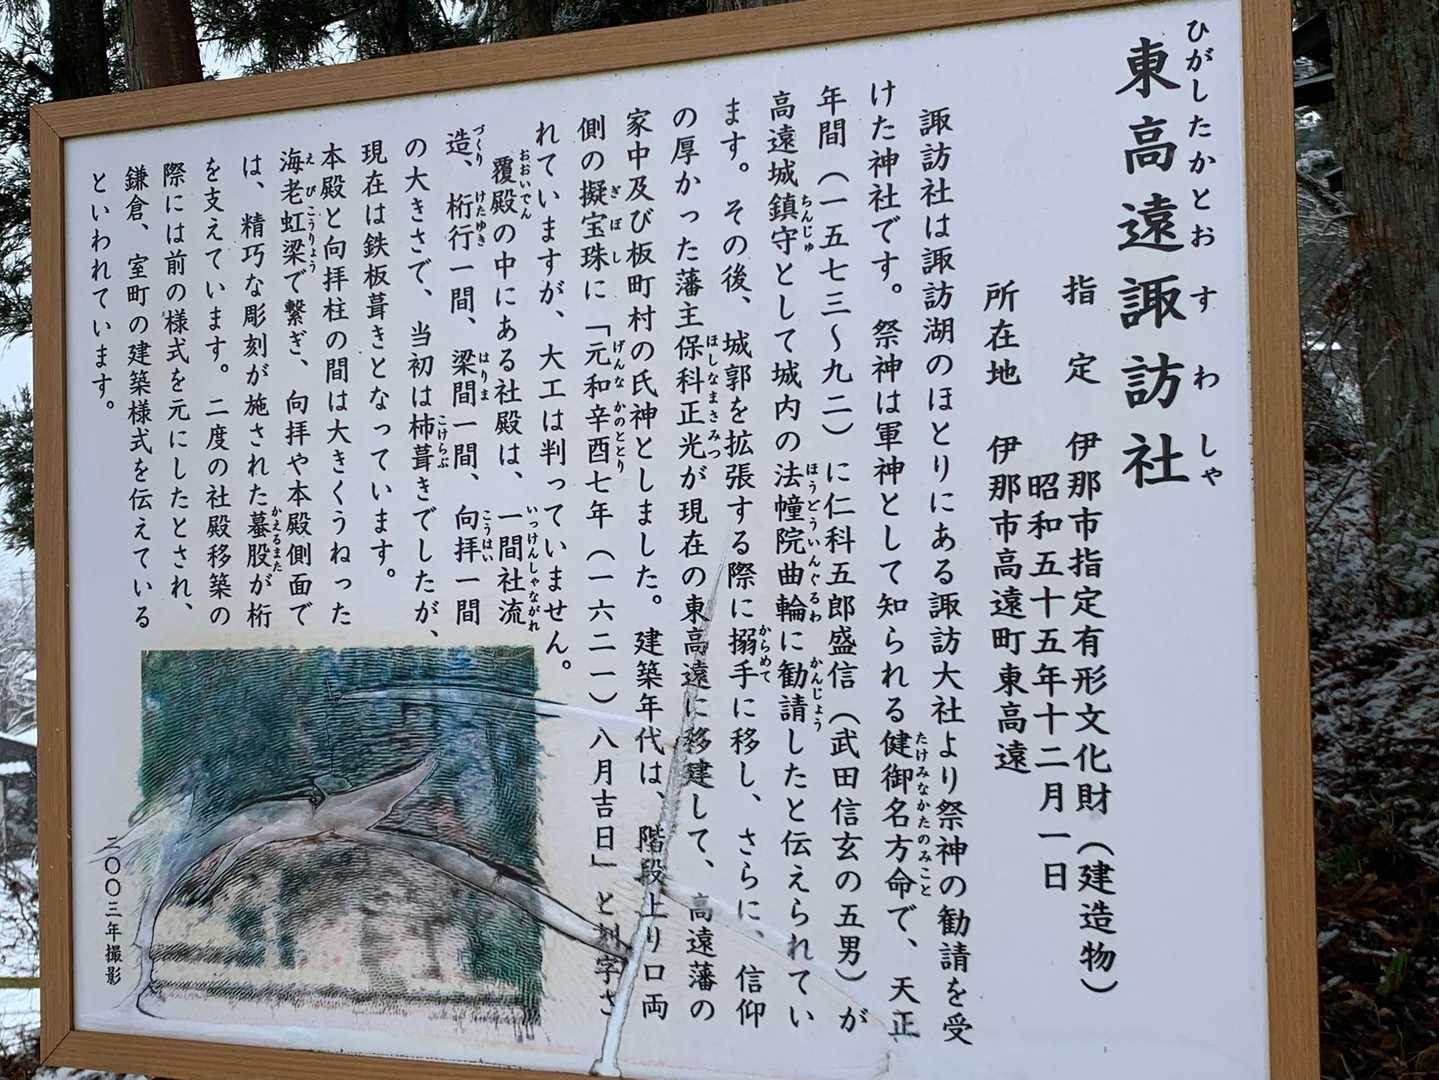 東高遠諏訪社
ひがしたかとおすわしゃ
指定 伊那市指定有形文化財（建造物）
昭和五十五年十二月一日
所在地 伊那市高遠町東高遠
諏訪社は諏訪湖のほとりにある諏訪大社より祭神の勧請を受
けた神社です。祭神は軍神として知られる健御名方命で、天正
たけみなかたのみこと
年間（一五七三〜九二）に仁科五郎盛信（武田信玄の五男）が
高遠城鎮守として城内の法幢院曲輪に勧請したと伝えられてい
ちんじゅ ほうどういんぐるわ かんじょう
ます。その後、城郭を拡張する際に搦手に移し、さらに、信仰
からめて
の厚かった藩主保科正光が現在の東高遠に移建して、高遠藩の
ほしなまさみつ
家中及び板町村の氏神としました。建築年代は、階段上り口両
側の擬宝珠に「元和辛酉七年（一六二一）八月吉日」と刻字さ
ぎぼし げんな かのととり
れていますが、大工は判っていません。
覆殿の中にある社殿は、一間社流
おおいでん いっけんしゃながれ
造、桁行一間、梁間一間、向拝一間
づくり けたゆき はりま こうはい
の大きさで、当初は柿葺きでしたが、
こけらぶ
現在は鉄板葺きとなっています。
本殿と向拝柱の間は大きくうねった
海老虹梁で繋ぎ、向拝や本殿側面で
えびこうりょう
は、精巧な彫刻が施された蟇股が桁
かえるまた
を支えています。二度の社殿移築の
際には前の様式を元にしたとされ、
鎌倉、室町の建築様式を伝えている
といわれています。
二〇〇三年撮影